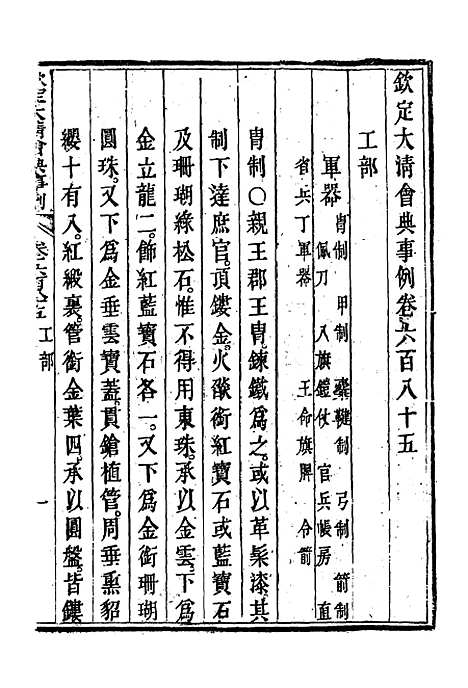 欽定大清會典事例卷六百八十五
工部
軍器 冑制 甲制 櫜鞬制 弓制 箭制
佩刀 八旗鎧仗 官兵帳房 直
省兵丁軍器 王命旗牌 令箭
冑制○親王郡王冑鍊鐵爲之或以革髹漆其
制下達庶官頂鏤金火燄銜紅寶石或藍寶石
及珊瑚綠松石惟不得用東珠承以金雲下爲
金立龍二飾紅藍寶石各一又下爲金銜珊瑚
圓珠又下爲金垂雲寶蓋貫鎗植管周垂熏貂
纓十有八紅緞裏管銜金葉四承以圓盤皆鏤
欽定大清會典事例 卷六百八十五 工部 一